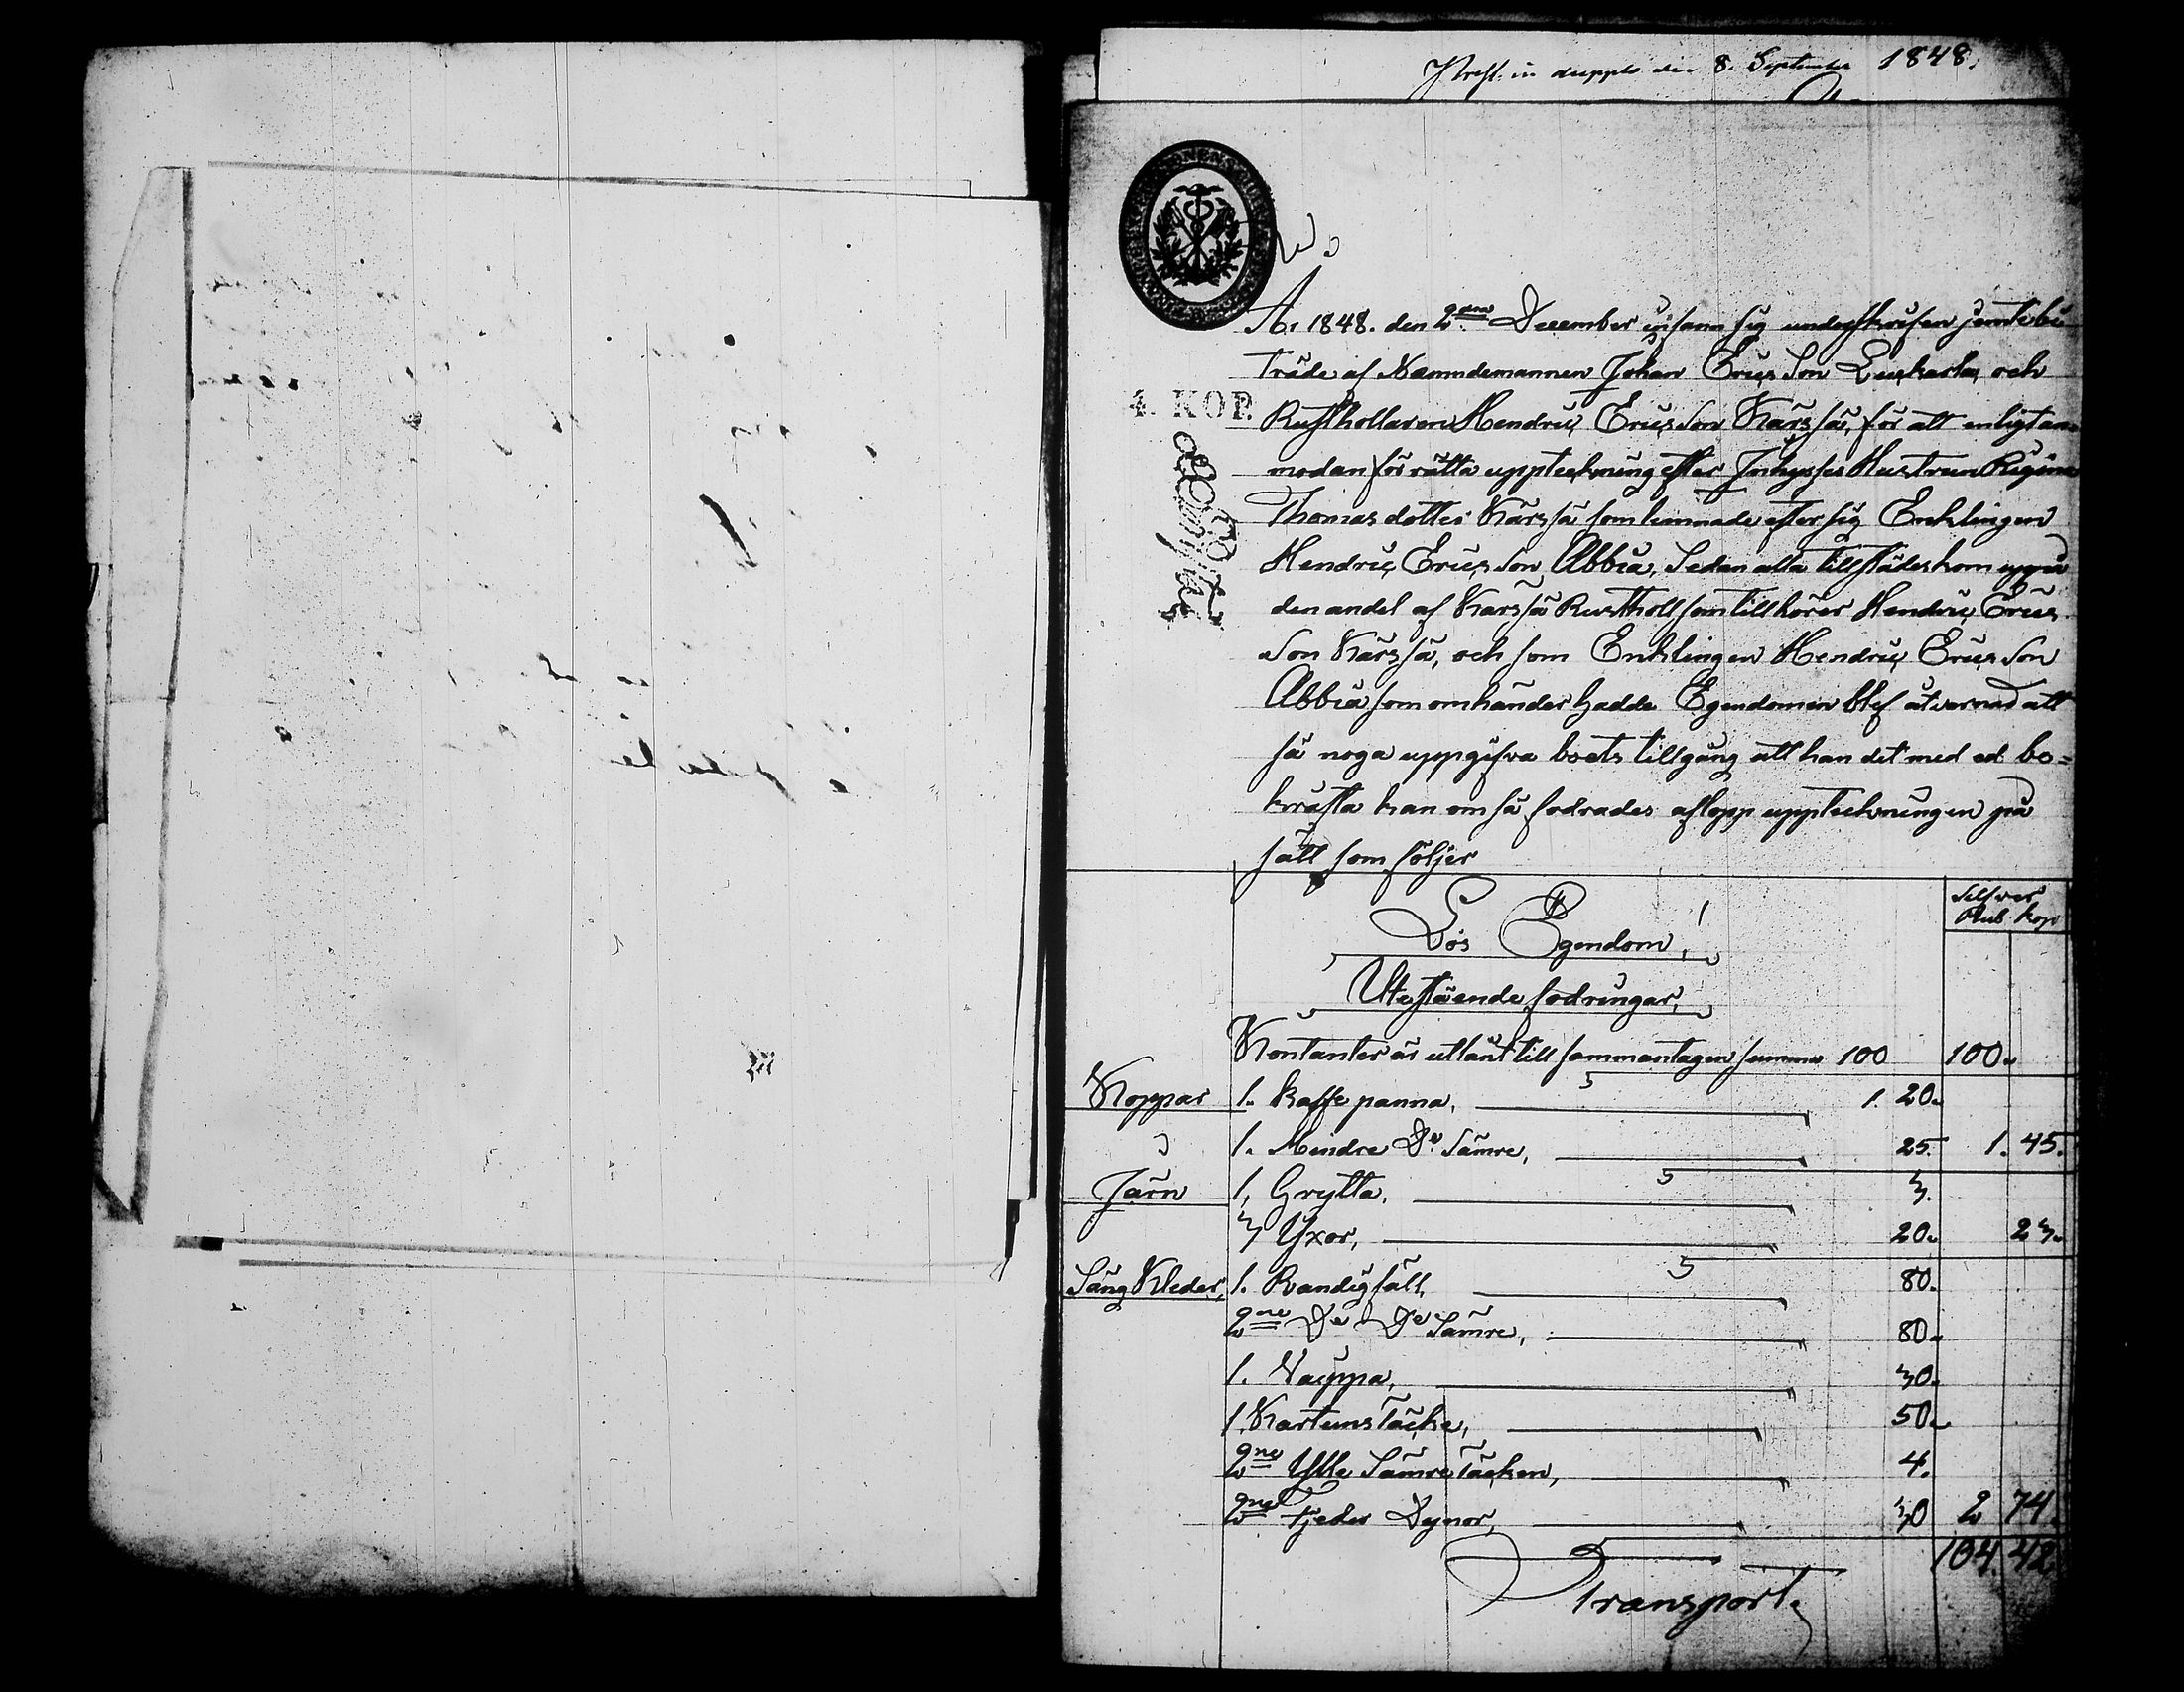 in duplo den 8. September 1848.
4. KOP.
År 1848. den 2dra December infann sig undertskrifen jemte bi
träde af Nämndemannen Johan Ericsson Leukarla, och
Rusthollaren Hendric Ericsson Kärssä, för att enligt an
modan förrätta uppteckning efter Inhyses Hustrun Regina
Thomas dotter Kärssä som lemnade efter sig Enklingen
Hendric Ericsson Abbia, Sedan alla tillstädes kom uppå
den andel af Karssä Rustholl som tillhörer Hendric Erics
son Kärssä, och som Enklingen Hendric Ericsson
Abbia som omhänder hadde Egendomen blef åtvarnad att
så noga uppgifva boets tillgång att han det med ed be=
kräfta kan om så fodrades aflopp uppteckningen på
sätt som följer
Silfver
Rub. kop
Lös Egendom,
Utestående fodringar,
Kontanter är utlånt till sammantagen summa 100 100.
Koppar 1. kaffe panna, 1. 20.
1. Mindre Do Sämre, 25. 1. 45.
Järn 1, Grytta, 3.
3 Yxor, 20. 23.
Säng Kleder, 1. Randig fäll, 80.
2ne Do Do Sämre, 80.
1. Vaippa, 30.
1. Kartuns täcke, 50.
2ne Ylle Sämre täcken, 4.
2ne Fjeder Dynor, 30 2 74.
104. 42
Transport.